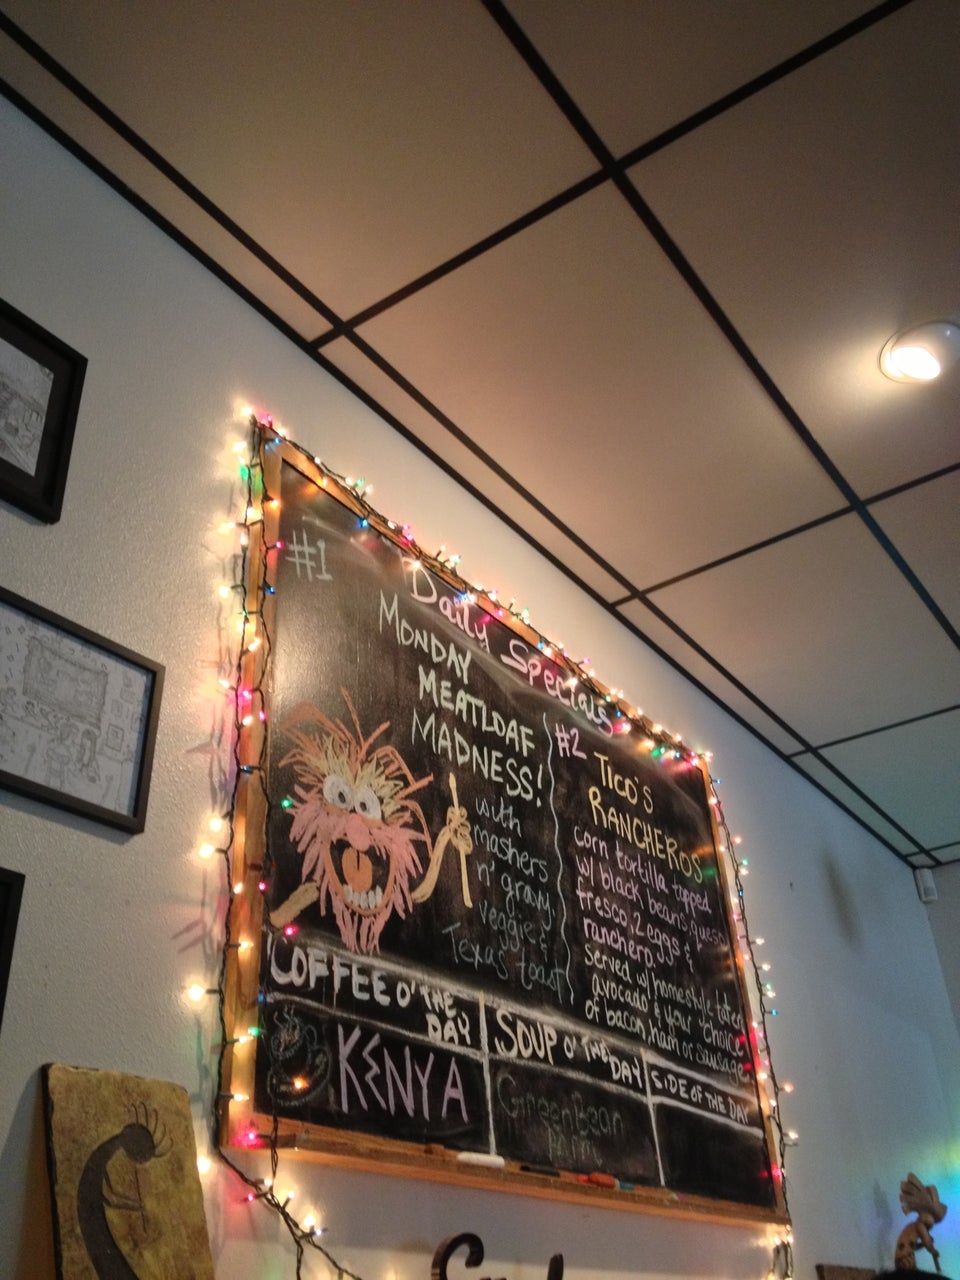 Daily Specials
#1
MONDAY
MEATLOAF
MADNESS!
with
mashers
n' gravy,
veggie &
Texas toast
#2
TICO'S
RANCHEROS
corn tortilla topped
w/ black beans, queso
fresco, 2 eggs &
ranchero,
served w/ homestyle taters
avocado & your choice
of bacon, ham or sausage
COFFEE O' THE
DAY
KENYA
SOUP O' THE DAY
Green Bean
SIDE OF THE DAY